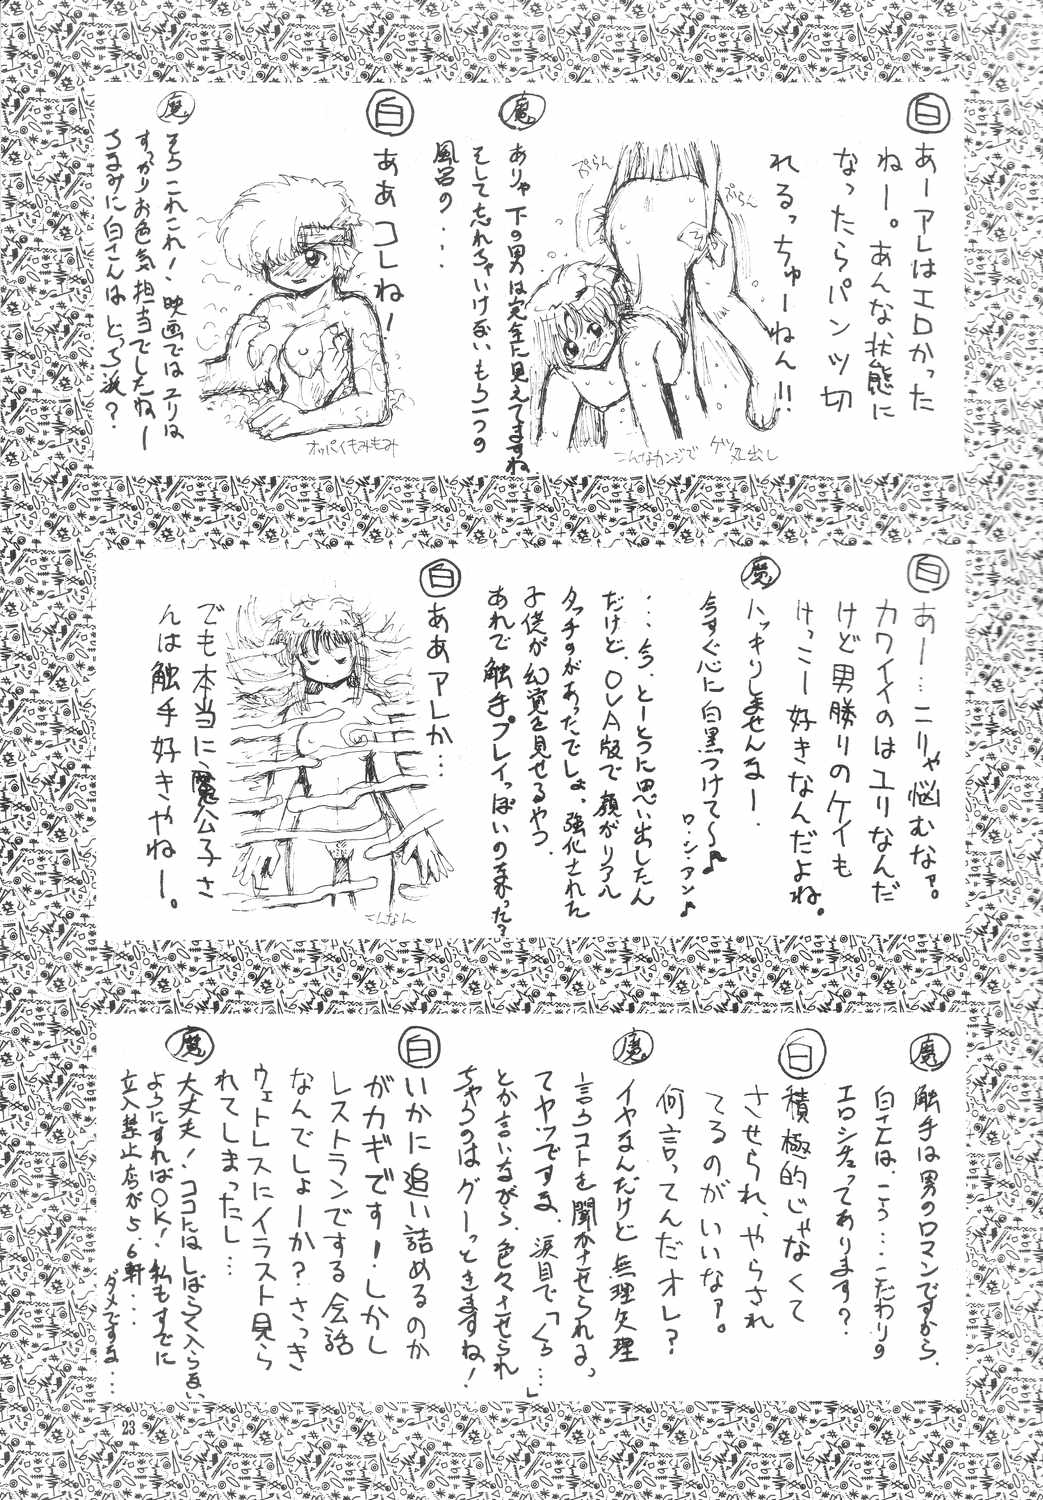 白
あーアレはエロかった
ねー。あんな状態に
なったらパンツ切
れるっちゅーねん!!
ぷらん
ぷらん
こんなカンジで
ケツ丸出し
魔
ありゃ下の男は完全に見えてますね
そして忘れちゃいけないもう一つの
風呂の・・・
白
ああコレねー
オッパイもみもみ
魔
そうこれこれ!映画ではユリは
すっかりお色気担当でしたねー
ちなみに白さんはどっち派?
白
あー……こりゃ悩むなァ。
カワイイのはユリなんだ
けど男勝りのケイも
けっこー好きなんだよね。
魔
ハッキリしませんなー
今すぐ心に白黒つけて〜♪
ロ・シ・ア・ン♪
・・・今、とーとつに思い出したん
だけど、OVA版で顔がリアル
タッチのがあったでしょ、強化された
子供が幻覚を見せるやつ
あれで触手プレイっぽいのあった?
白
ああアレか…
こんなん
でも本当に魔公子さ
んは触手好きやねー。
魔
触手は男のロマンですから、
白さんは、こう……こだわりの
エロシチュってあります?
白
積極的じゃなくて
させられ、やらされ
てるのがいいなァ。
何言ってんだオレ?
魔
イヤなんだけど無理矢理
言うコトを聞かせられる、
てヤツですな、涙目で「くぅ…」
とか言いながら、色々させられ
ちゃうのはグーっときますね!
白
いかに追い詰めるのか
がカギです!しかし
レストランでする会話
なんでしょーか?さっき
ウェトレスにイラスト見ら
れてしまったし…
魔
大丈夫!ココにはしばらく入らない
ようにすればOK!私もすでに
立入禁止店が5、6軒・・・
ダメですな・・・
23